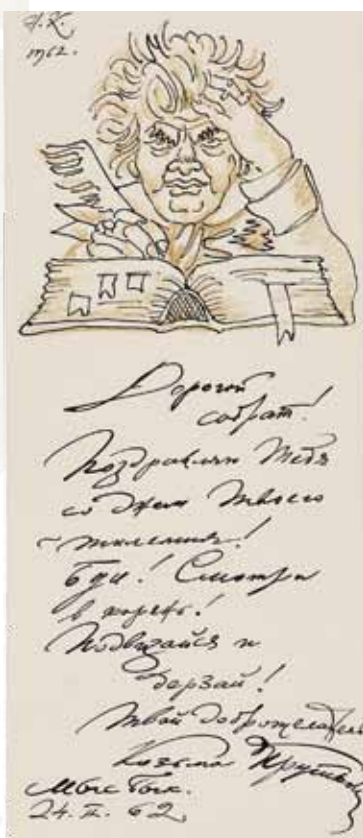 1962.
Дорогой
собрат!
Поздравляю Тебя
со днем Твоего
Буди! Смотри
в корень!
Подвизайся и
дерзай!
Твой доброжелатель
Козьма Прутков
Мыс
24. 62